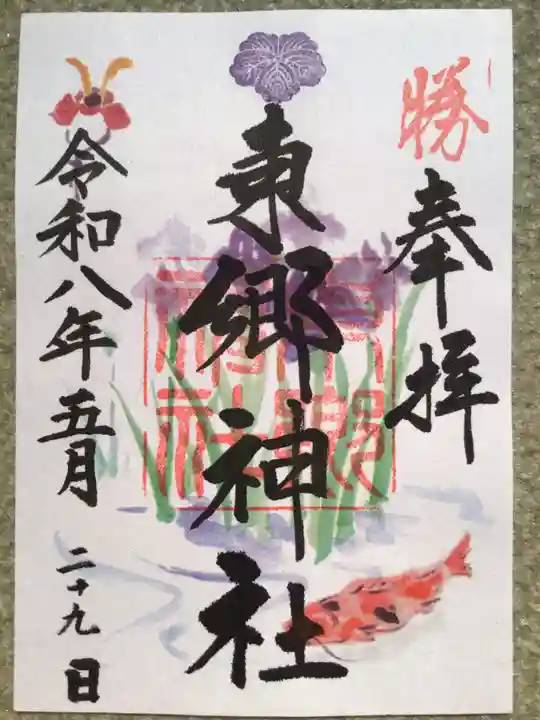 勝
奉拝
東郷神社
東郷神社
令和八年五月二十九日